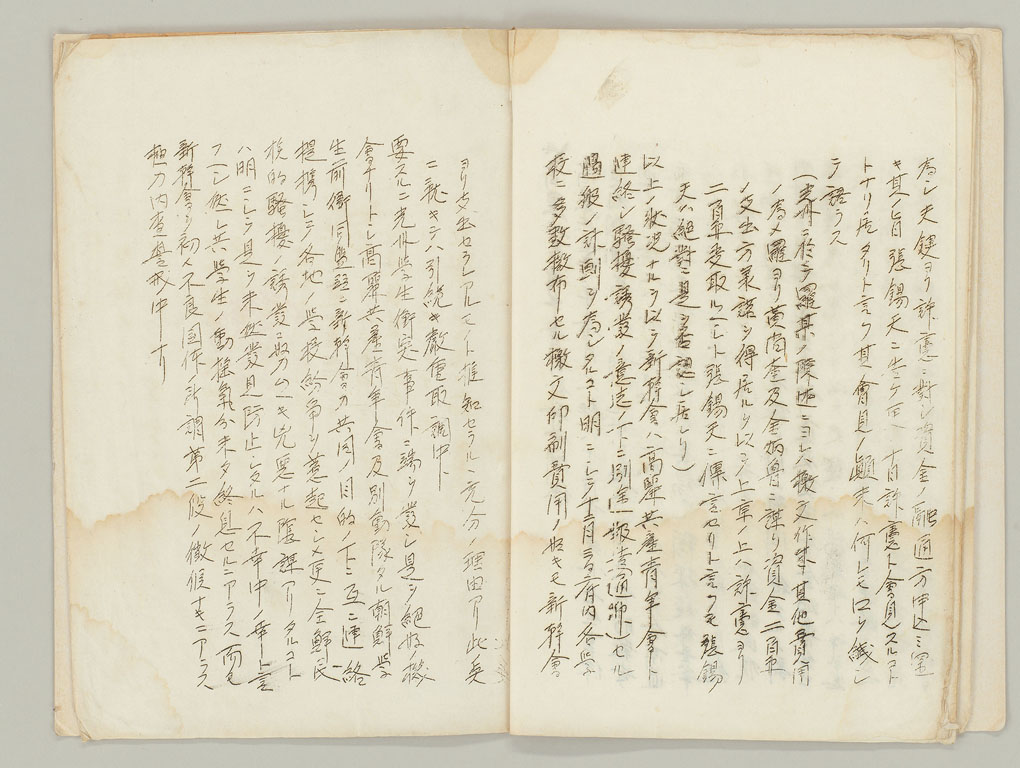 為シ夫鍵ヨリ許憲ニ対シ資金ノ融通方申込ミ置
キ其ノ旨張錫天ニ告ケ 十日許憲ト會見スルコト
トナリ居タリト言フ其會見ノ顛末ハ何レモ口ヲ緘シ
テ語ラス
(未件ニ於ケル羅某ノ陳述ニヨレハ檄文作成其他費用
ノ為メ羅ヨリ黄尚 及金 ニ謀リ資金二百円
ノ支出方承諾ヲ得居ルヲ以テ上京ノ上ハ許憲ヨリ
二百円受取ルヘシト張錫天ニ傳言セリト言フモ張錫
天ハ絶對ニ是ヲ否認シ居レリ)
以上ノ状況ナルヲ以テ新幹會ハ高麗共産青年會ト
連絡シ騒擾誘發ノ意志ノ下ニ別 報告通
級ノ計劃ヲ為シタルコト明ニシテ十二月三日府内各學
校ニ多數撒布セル檄文印刷費用ノ如キモ新幹會
ヨリ支出セラレアルモノト推知セラルヽ充分ノ理由アリ此点
ニ就キテハ引続キ厳重取調中
要スルニ光州學生衝突事件ニ端ヲ發シ是ヲ絶好機
會ナリトシ高麗共産青年會及別動隊タル朝鮮學
生前衛同盟竝ニ新幹會カ共同ノ目的ノ下ニ互ニ連絡
提携シテ各地ノ學校紛争ヲ惹起セシメ更ニ全鮮民
族的騒擾ノ誘發ニ努ムヘキ兇悪ナル陰謀アリタルコト
ハ明ニシテ是ヲ未然發見防止シタルハ不幸中ノ幸ト言
フヘシ然レ共學生ノ動揺氣分未タ終息セルニアラス而モ
新幹會ヲ初メ不良團体ノ所謂第二段ノ徴候ナキニアラス
極力内査警戒中ナリ